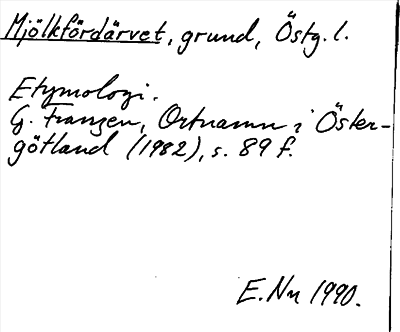 Mjölkfördärvet, grund, Östg. l.
Etymologi.
G. Franzén, Ortnamn i Öster-
götland (1982), s. 89 f.
E. Nn 1990.